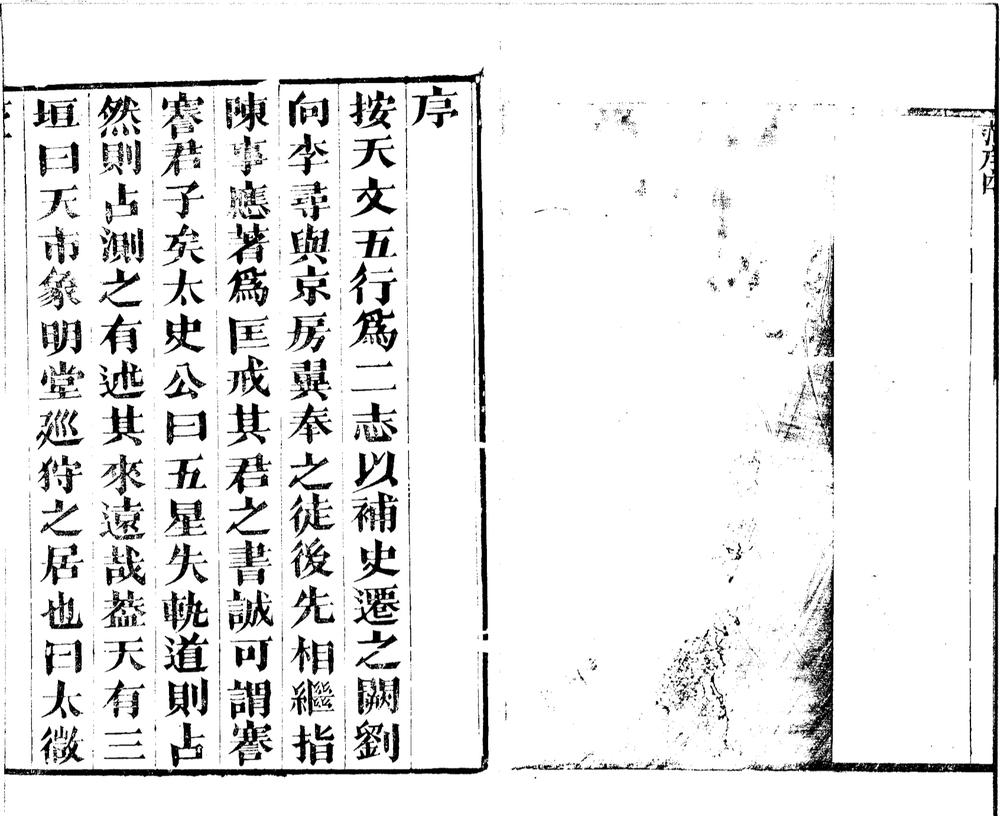 序
按天文五行爲二志以補史遷之闕劉
向李尋與京房翼奉之徒後先相繼指
陳事應著爲匡戒其君之書誠可謂謇
謇君子矣太史公曰五星失軌道則占
然則占測之有述其來遠哉葢天有三
垣曰天市象明堂廵狩之居也曰太微